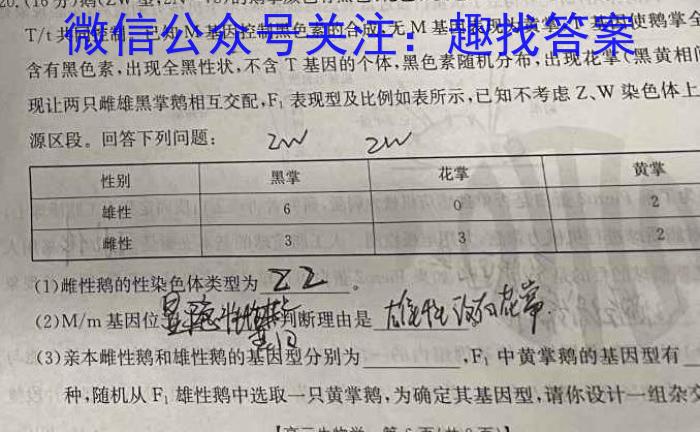 微信公众号关注：趣找答案
含有黑色素,出现全黑性状,不含 T 基因的个体,黑色素随机分布,出现花掌(黑黄相间
现让两只雌雄黑掌鹅相互交配,F₁ 表现型及比例如表所示,已知不考虑 Z、W 染色体上
源区段。回答下列问题:
ZW ZW
性别 黑掌 花掌 黄掌
雄性 6 0 2
雌性 3 3 2
(1)雌性鹅的性染色体类型为 ZZ 。
(2)M/m 基因位 判断理由是 雄性没有花掌
(3)亲本雌性鹅和雄性鹅的基因型分别为 ,F₁ 中黄掌鹅的基因型有
种,随机从 F₁ 雄性鹅中选取一只黄掌鹅,为确定其基因型,请你设计一组杂交